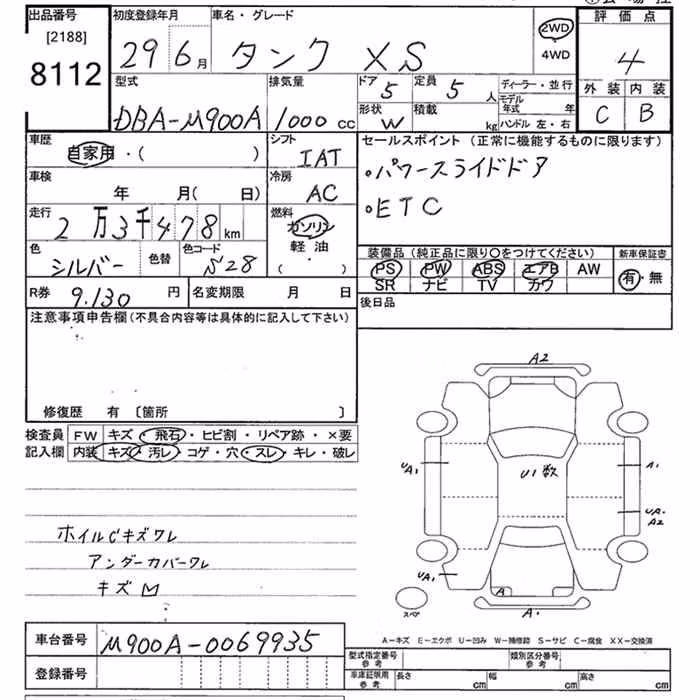 出品番号
[2188]
8112
初度登録年月
29 6月
車名・グレード
タンク XS
2WD
4WD
評価点
4
外装 内装
C B
型式
DBA-M900A
排気量
1000 cc
ドア
5
定員
5 人
形状
W
積載
kg
ディーラー・並行
モデル年式 年
ハンドル 左・右
車歴
自家用・( )
シフト
IAT
車検
年 月(日)
冷房
AC
走行
2万3千478km
燃料
ガソリン
軽油
( )
色
シルバー
色替
色コード
S28
セールスポイント (正常に機能するものに限ります)
・パワースライドドア
・ETC
装備品 (純正品に限り〇をつけてください)
PS PW ABS エアB AW
SR ナビ TV カワ
新車保証書
有・無
R券 9.130 円
名変期限 月 日
後日品
注意事項申告欄(不具合内容等は具体的に記入して下さい)
修復歴 有 〔箇所 〕
検査員
記入欄
FW キズ・飛石・ヒビ割・リペア跡・×要
内装 キズ・汚レ・コゲ・穴・スレ・キレ・破レ
ホイルCキズワレ
アンダーカバーワレ
キズ
A2
UA1
U1数
A1
UA1
A2
UA1
A
A1
スペア
A-キズ E-エクボ U-凹み W-補修跡 S-サビ C-腐食 XX-交換済
車台番号 M900A-0069935
登録番号
型式指定番号
参考
類別区分番号
参考
車庫証明用
参考
長さ cm
幅 cm
高さ cm